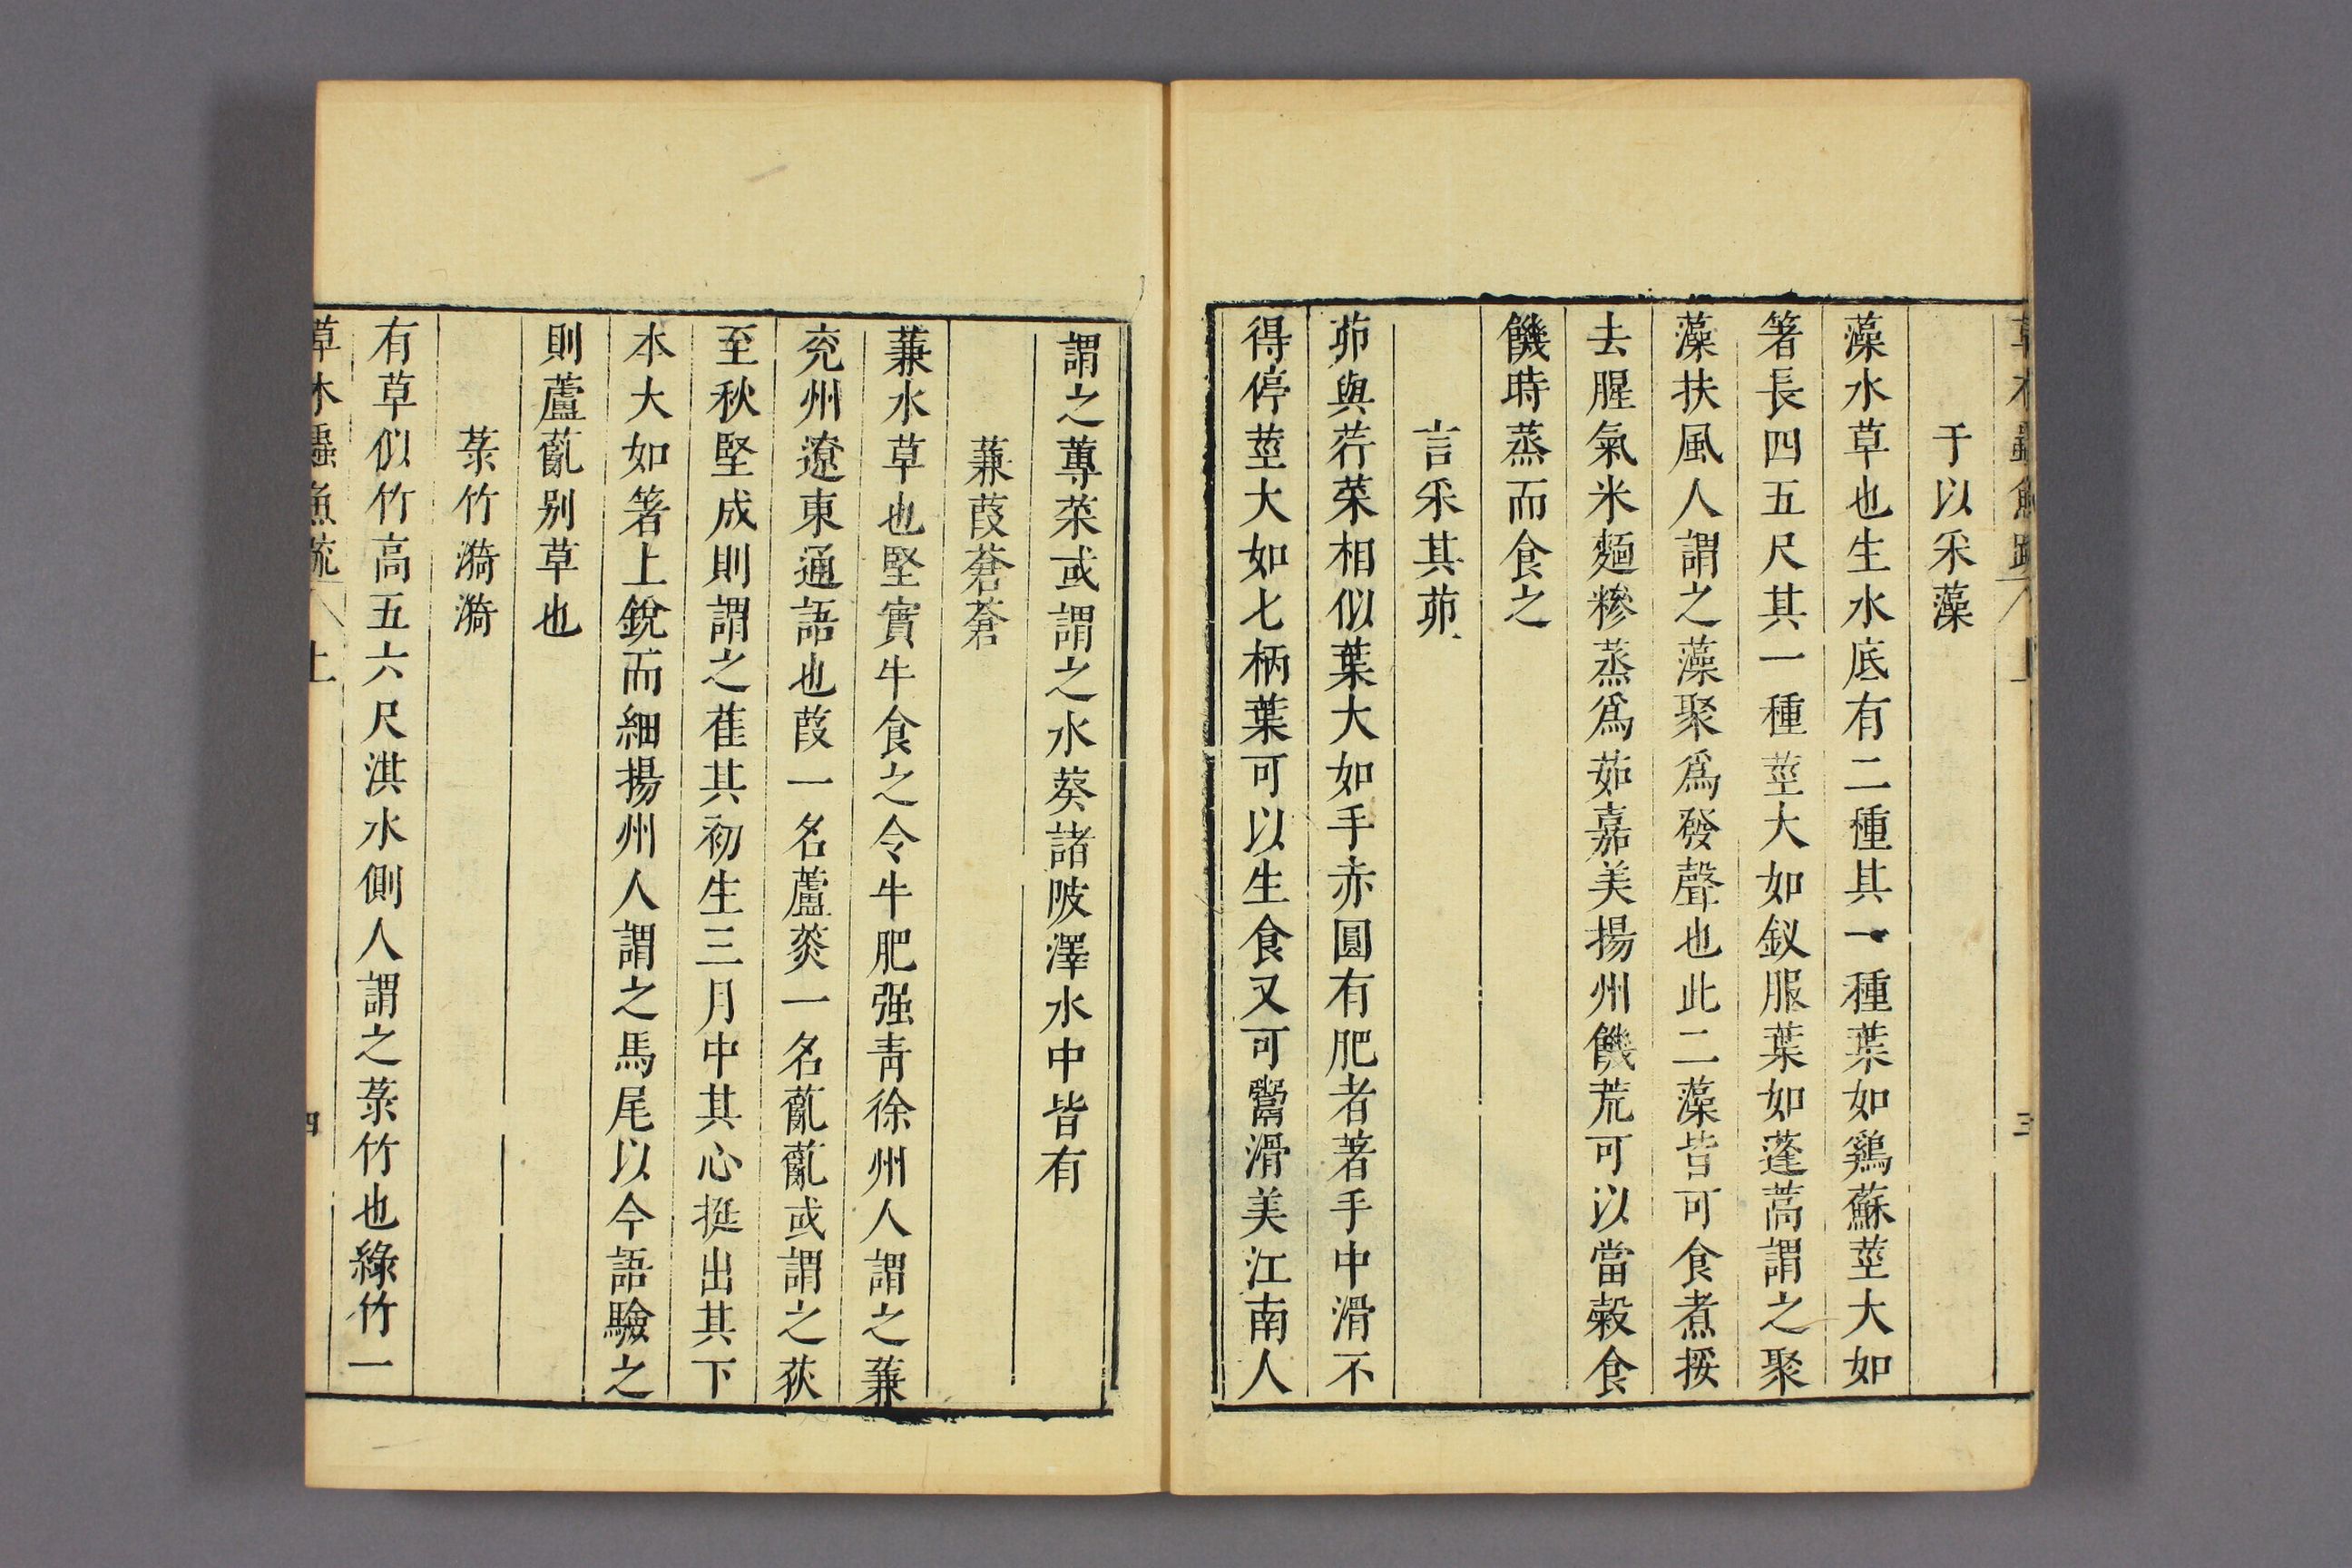 草木蟲魚疏 上 三
于以采藻
藻水草也生水底有二種其一種葉如鷄蘇莖大如
箸長四五尺其一種莖大如釵股葉如蓬蒿謂之聚
藻扶風人謂之藻聚爲發聲也此二藻皆可食煮挼
去腥氣米麵糝蒸爲茹嘉美揚州饑荒可以當穀食
饑時蒸而食之
言采其茆
茆與荇菜相似葉大如手赤圓有肥者著手中滑不
得停莖大如七柄葉可以生食又可鬻滑美江南人
謂之蓴菜或謂之水葵諸陂澤水中皆有
蒹葭蒼蒼
蒹水草也堅實牛食之令牛肥强青徐州人謂之蒹
兖州遼東通語也葭一名蘆菼一名薍薍或謂之荻
至秋堅成則謂之萑其初生三月中其心挺出其下
本大如箸上銳而細揚州人謂之馬尾以今語驗之
則蘆薍别草也
菉竹漪漪
有草似竹高五六尺淇水側人謂之菉竹也綠竹一
草木蟲魚疏 上 四